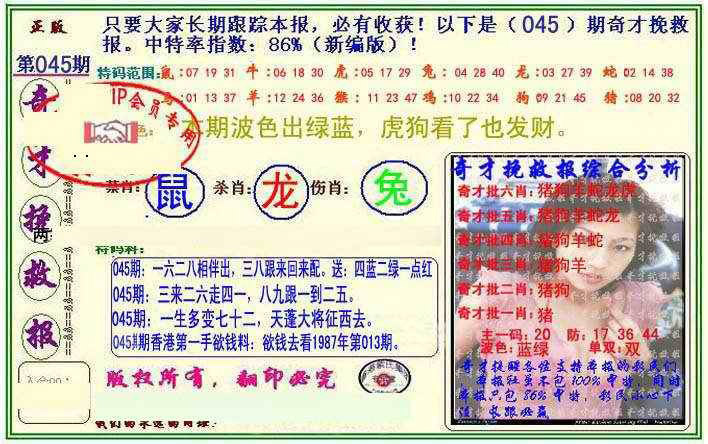 正版
只要大家长期跟踪本报，必有收获！以下是（045）期奇才挽救
报。中特率指数：86%（新编版）！
第045期
特码范围:鼠:07 19 31 牛:06 18 30 虎:05 17 29 兔:04 28 40 龙:03 27 39 蛇:02 14 38
:01 13 37 羊:12 24 36 猴:11 23 47 鸡:10 22 34 狗:09 21 45 猪:08 20 32
IP会员专用
色:本期波色出绿蓝，虎狗看了也发财。
奇才挽救报
两
禁肖:鼠 杀肖:龙 伤肖:兔
特码料:
045期：一六二八相伴出，三八跟来回来配。送：四蓝二绿一点红
045期：三来二六走四一，八九跟一到二五。
045期：一生多变七十二，天蓬大将征西去。
045期香港第一手欲钱料：欲钱去看1987年第013期。
版权所有，翻印必究
奇才挽救报综合分析
奇才批六肖:猪狗羊蛇龙虎
奇才批五肖:猪狗羊蛇龙
奇才批四肖:猪狗羊蛇
奇才批三肖:猪狗羊
奇才批二肖:猪狗
奇才批一肖:猪
主一码：20 防：17 36 44
波色：蓝绿 单双：双
奇才提醒各位支持本报的彩民们
本报社员不包100%中特，同时
本报只包86%中特，彩民小心下
注，长跟必赢